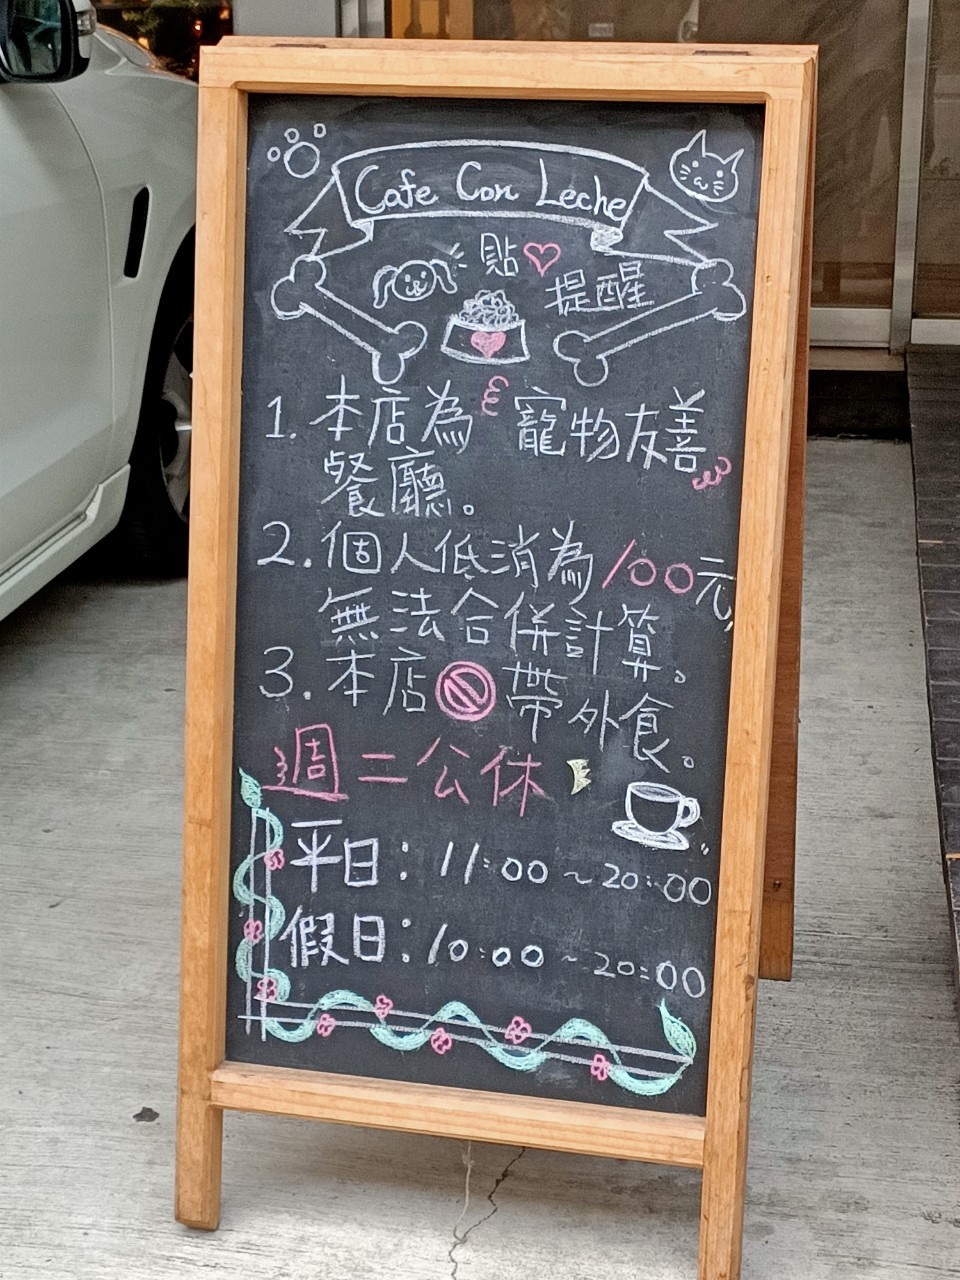 Cafe Con Leche
貼♡
提醒
1. 本店為 寵物友善
餐廳。
2. 個人低消為100元,
無法合併計算。
3. 本店🚫帶外食。
週二公休
平日：11:00~20:00
假日：10:00~20:00